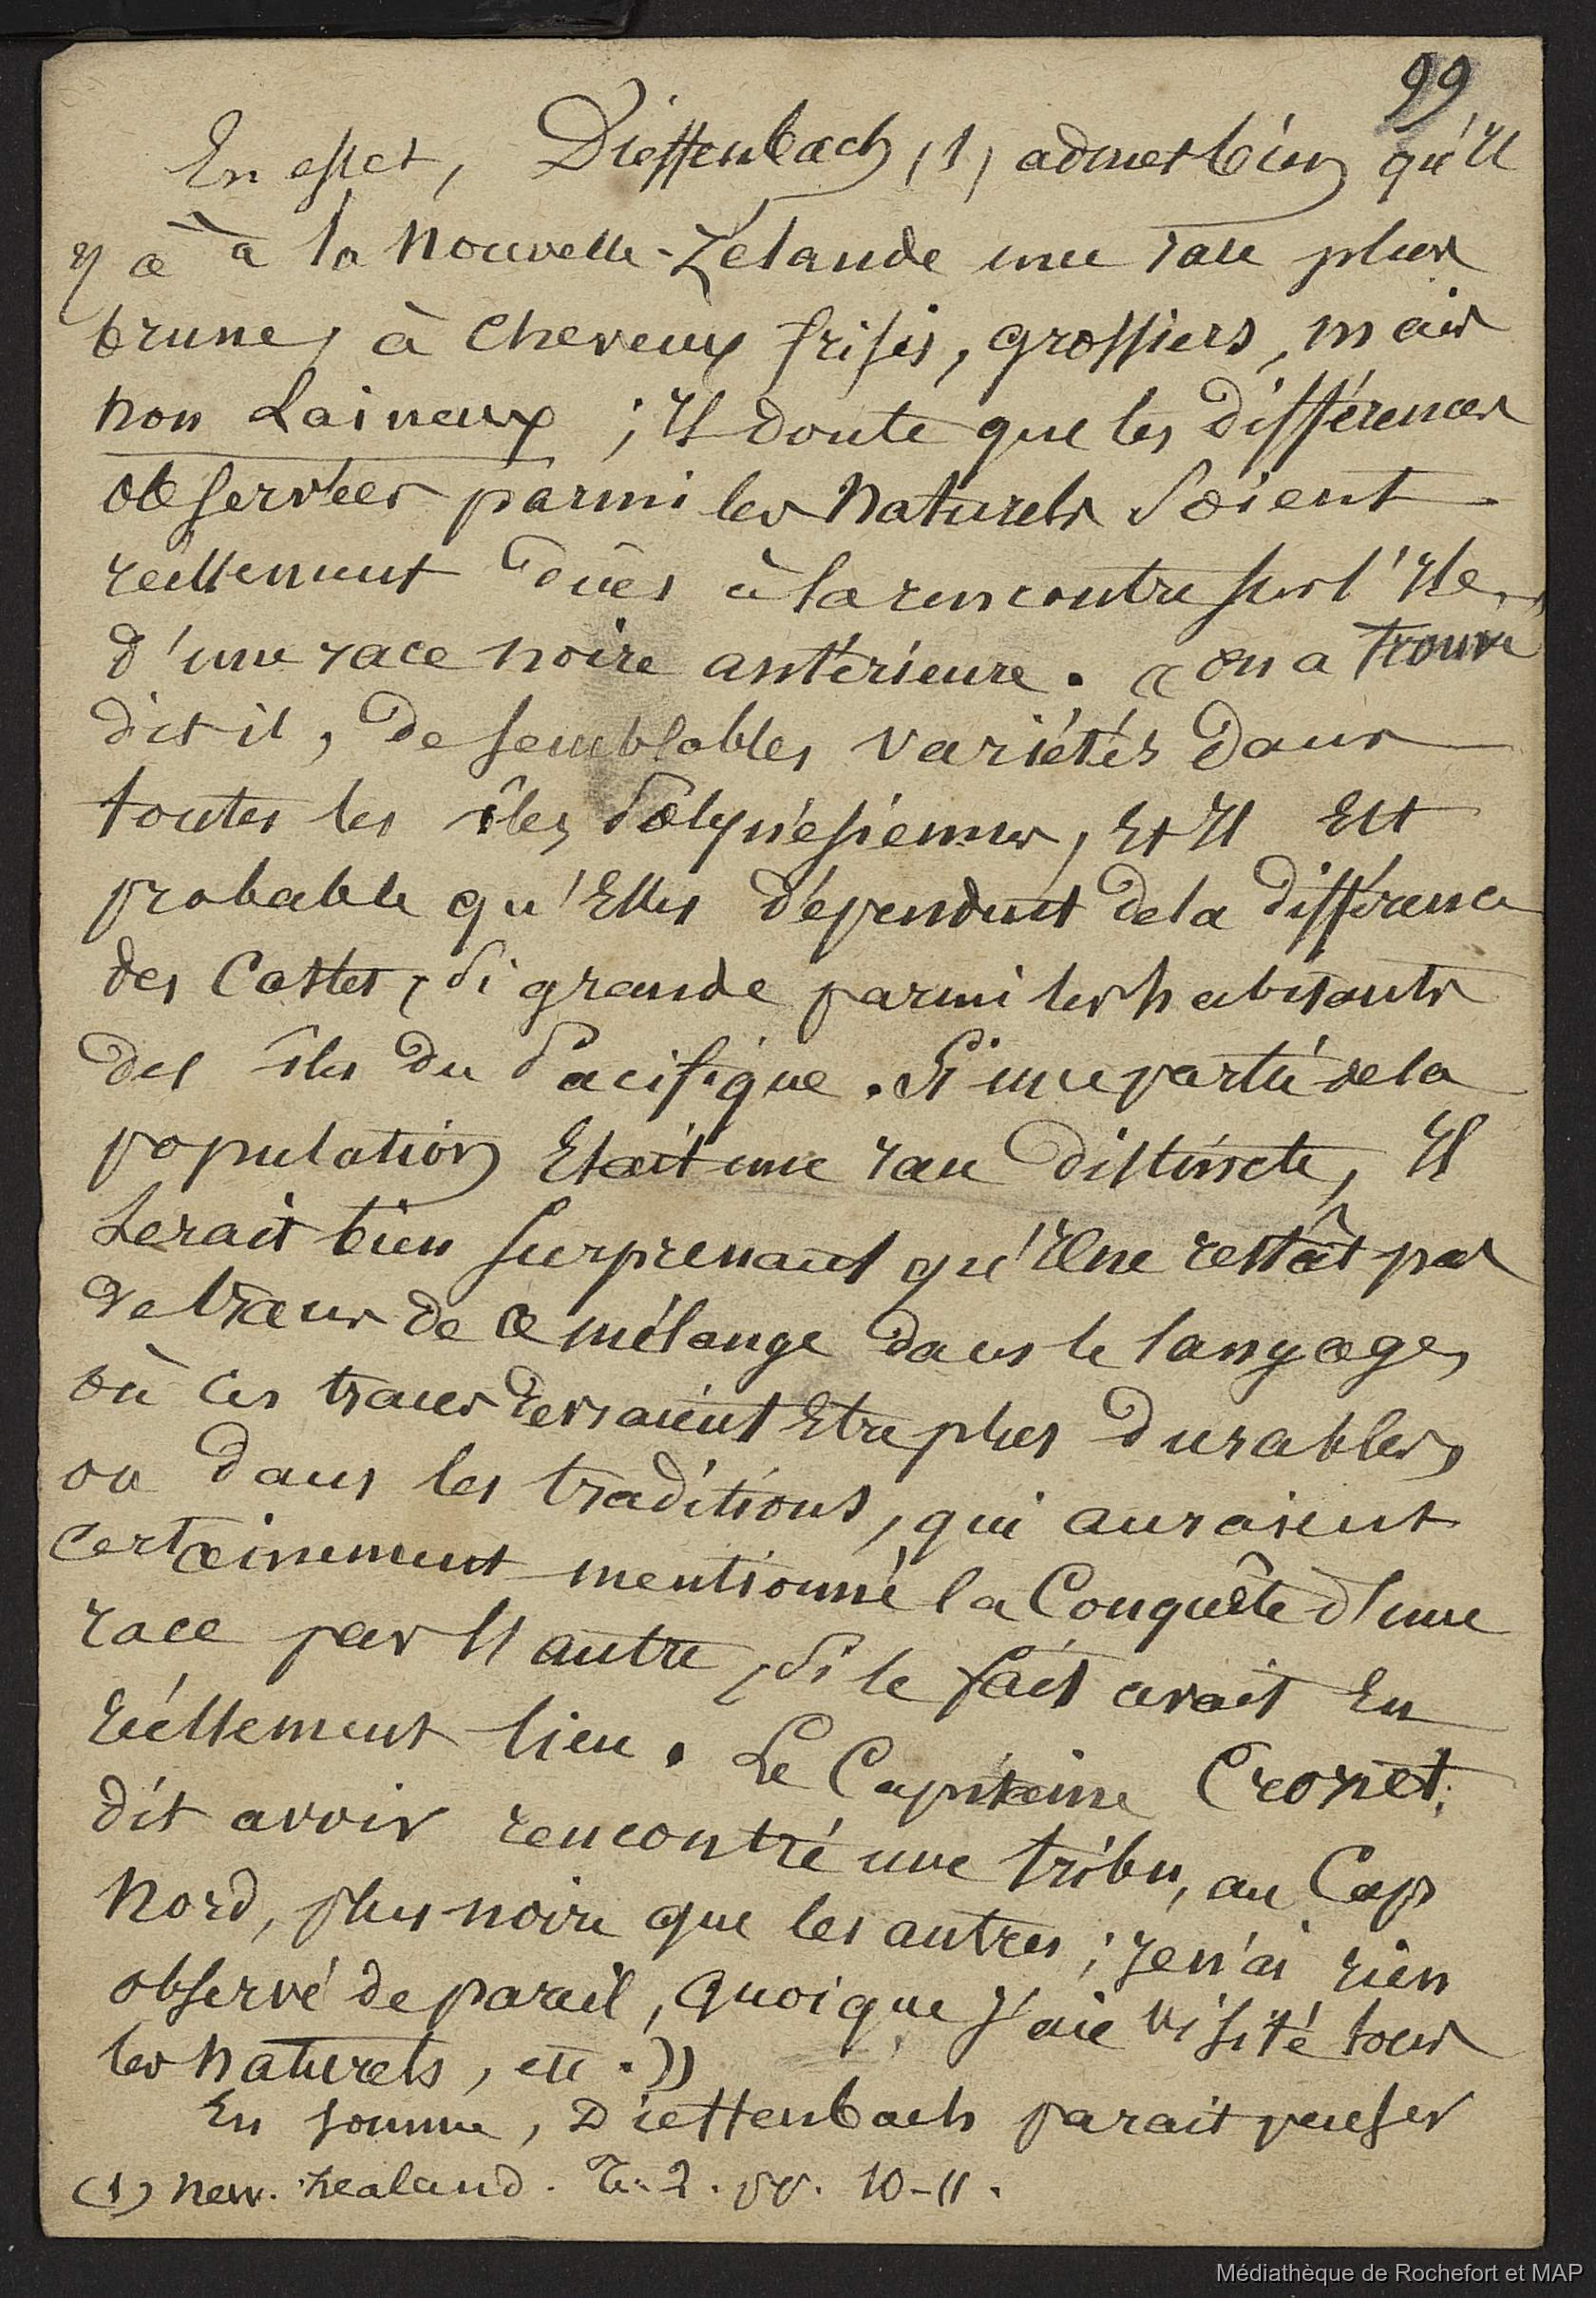 99
En effet, Dieffenbach (1) admet bien qu'il
y a à la Nouvelle-Zélande une race plus
brune, à cheveux frisés, grossiers, mais
non Laineux ; Il doute que les différences
observées parmi les Naturels soient
réellement dûes à la rencontre sur l'Ile
d'une race noire antérieure. « on a trouvé
dit il, de semblables variétés dans
toutes les îles Polynésiennes, Et Il Est
probable qu'Elles dépendent de la différence
des Castes, si grande parmi les habitants
des îles du Pacifique. Si une partie de la
population Etait une race distincte, Il
serait bien surprenant qu'Il ne restât pas
de traces de ce mélange dans le langage,
où ces traces devraient Etre plus durables,
ou dans les traditions, qui auraient
certainement mentionné la Conquête d'une
race par l'autre, si le fait avait Eu
réellement lieu. Le Capitaine Crozet,
dit avoir rencontré une tribu, au Cap
Nord, plus noire que les autres ; Je n'ai rien
observé de pareil, quoique J'aie visité tous
les naturels, etc. »
En somme, Dieffenbach parait penser
(1) New. Zealand. T. 2. pp. 10-11.
Médiathèque de Rochefort et MAP